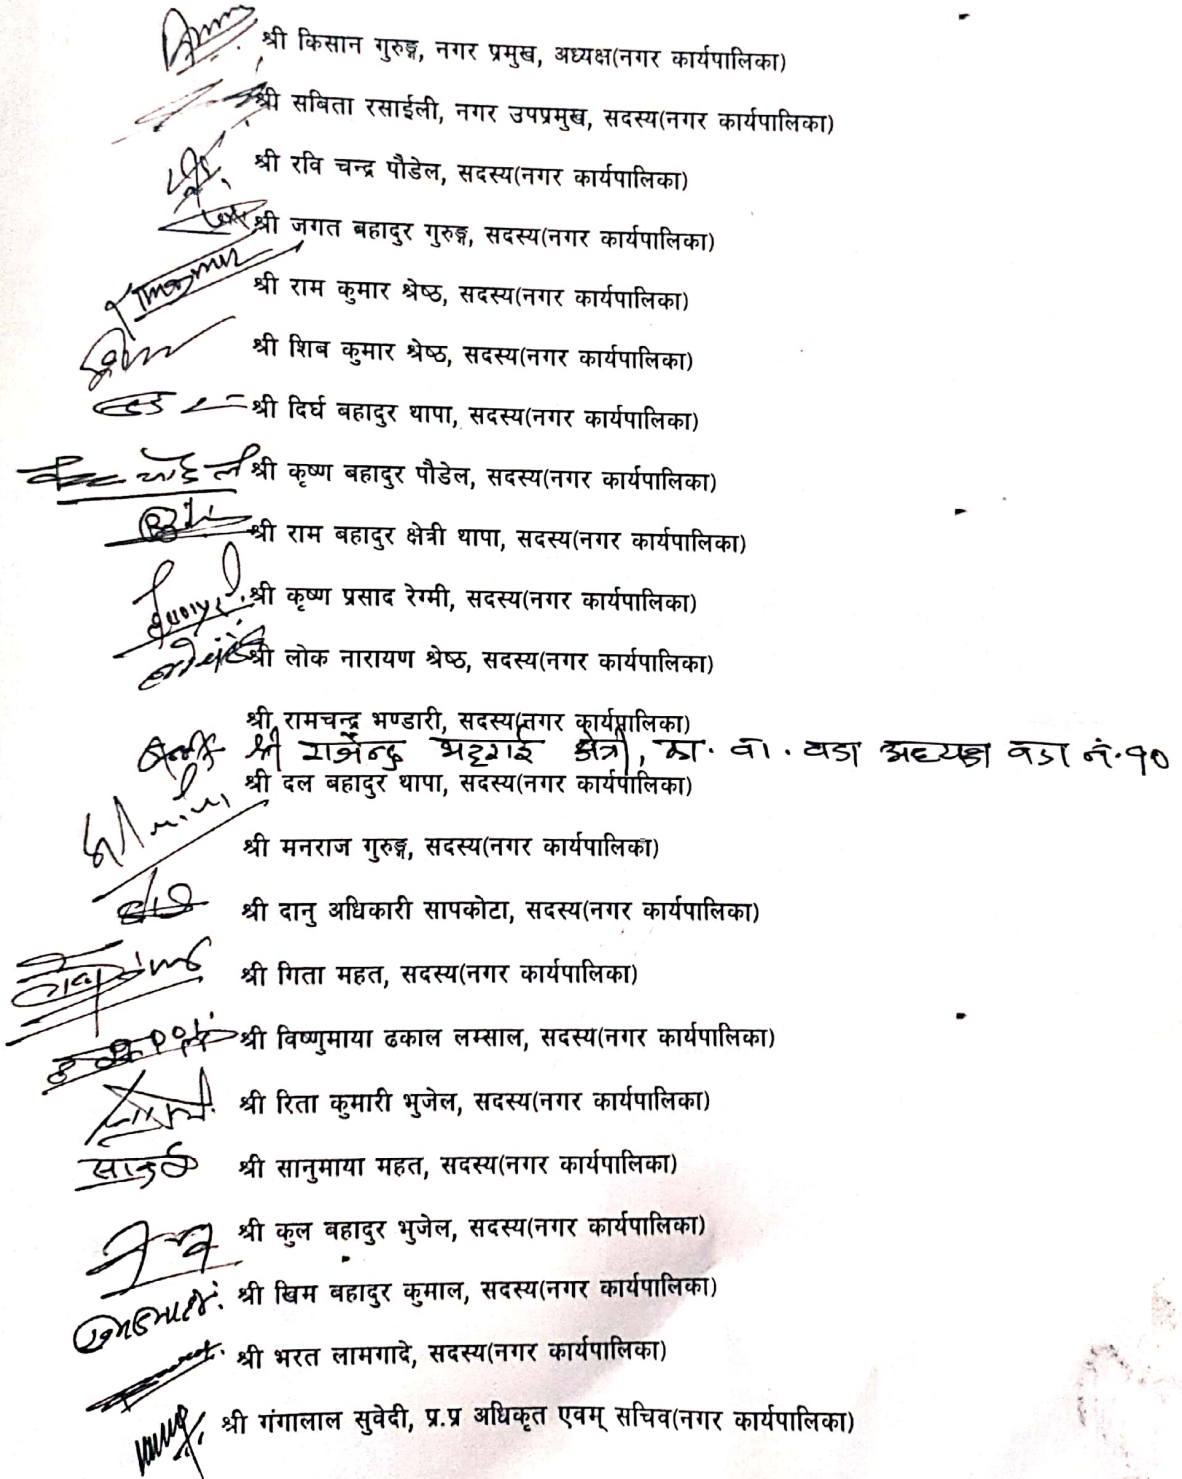 श्री किसान गुरुङ्ग, नगर प्रमुख, अध्यक्ष(नगर कार्यपालिका)
श्री सबिता रसाईली, नगर उपप्रमुख, सदस्य(नगर कार्यपालिका)
श्री रवि चन्द्र पौडेल, सदस्य(नगर कार्यपालिका)
श्री जगत बहादुर गुरुङ्ग, सदस्य(नगर कार्यपालिका)
श्री राम कुमार श्रेष्ठ, सदस्य(नगर कार्यपालिका)
श्री शिब कुमार श्रेष्ठ, सदस्य(नगर कार्यपालिका)
श्री दिर्घ बहादुर थापा, सदस्य(नगर कार्यपालिका)
श्री कृष्ण बहादुर पौडेल, सदस्य(नगर कार्यपालिका)
श्री राम बहादुर क्षेत्री थापा, सदस्य(नगर कार्यपालिका)
श्री कृष्ण प्रसाद रेग्मी, सदस्य(नगर कार्यपालिका)
श्री लोक नारायण श्रेष्ठ, सदस्य(नगर कार्यपालिका)
श्री रामचन्द्र भण्डारी, सदस्य(नगर कार्यपालिका)
श्री राजेन्द्र भट्टराई क्षेत्री, का. वा. वडा अध्यक्ष वडा नं.१०
श्री दल बहादुर थापा, सदस्य(नगर कार्यपालिका)
श्री मनराज गुरुङ्ग, सदस्य(नगर कार्यपालिका)
श्री दानु अधिकारी सापकोटा, सदस्य(नगर कार्यपालिका)
श्री गिता महत, सदस्य(नगर कार्यपालिका)
श्री विष्णुमाया ढकाल लम्साल, सदस्य(नगर कार्यपालिका)
श्री रिता कुमारी भुजेल, सदस्य(नगर कार्यपालिका)
श्री सानुमाया महत, सदस्य(नगर कार्यपालिका)
श्री कुल बहादुर भुजेल, सदस्य(नगर कार्यपालिका)
श्री खिम बहादुर कुमाल, सदस्य(नगर कार्यपालिका)
श्री भरत लामगादे, सदस्य(नगर कार्यपालिका)
श्री गंगालाल सुवेदी, प्र.प्र अधिकृत एवम् सचिव(नगर कार्यपालिका)